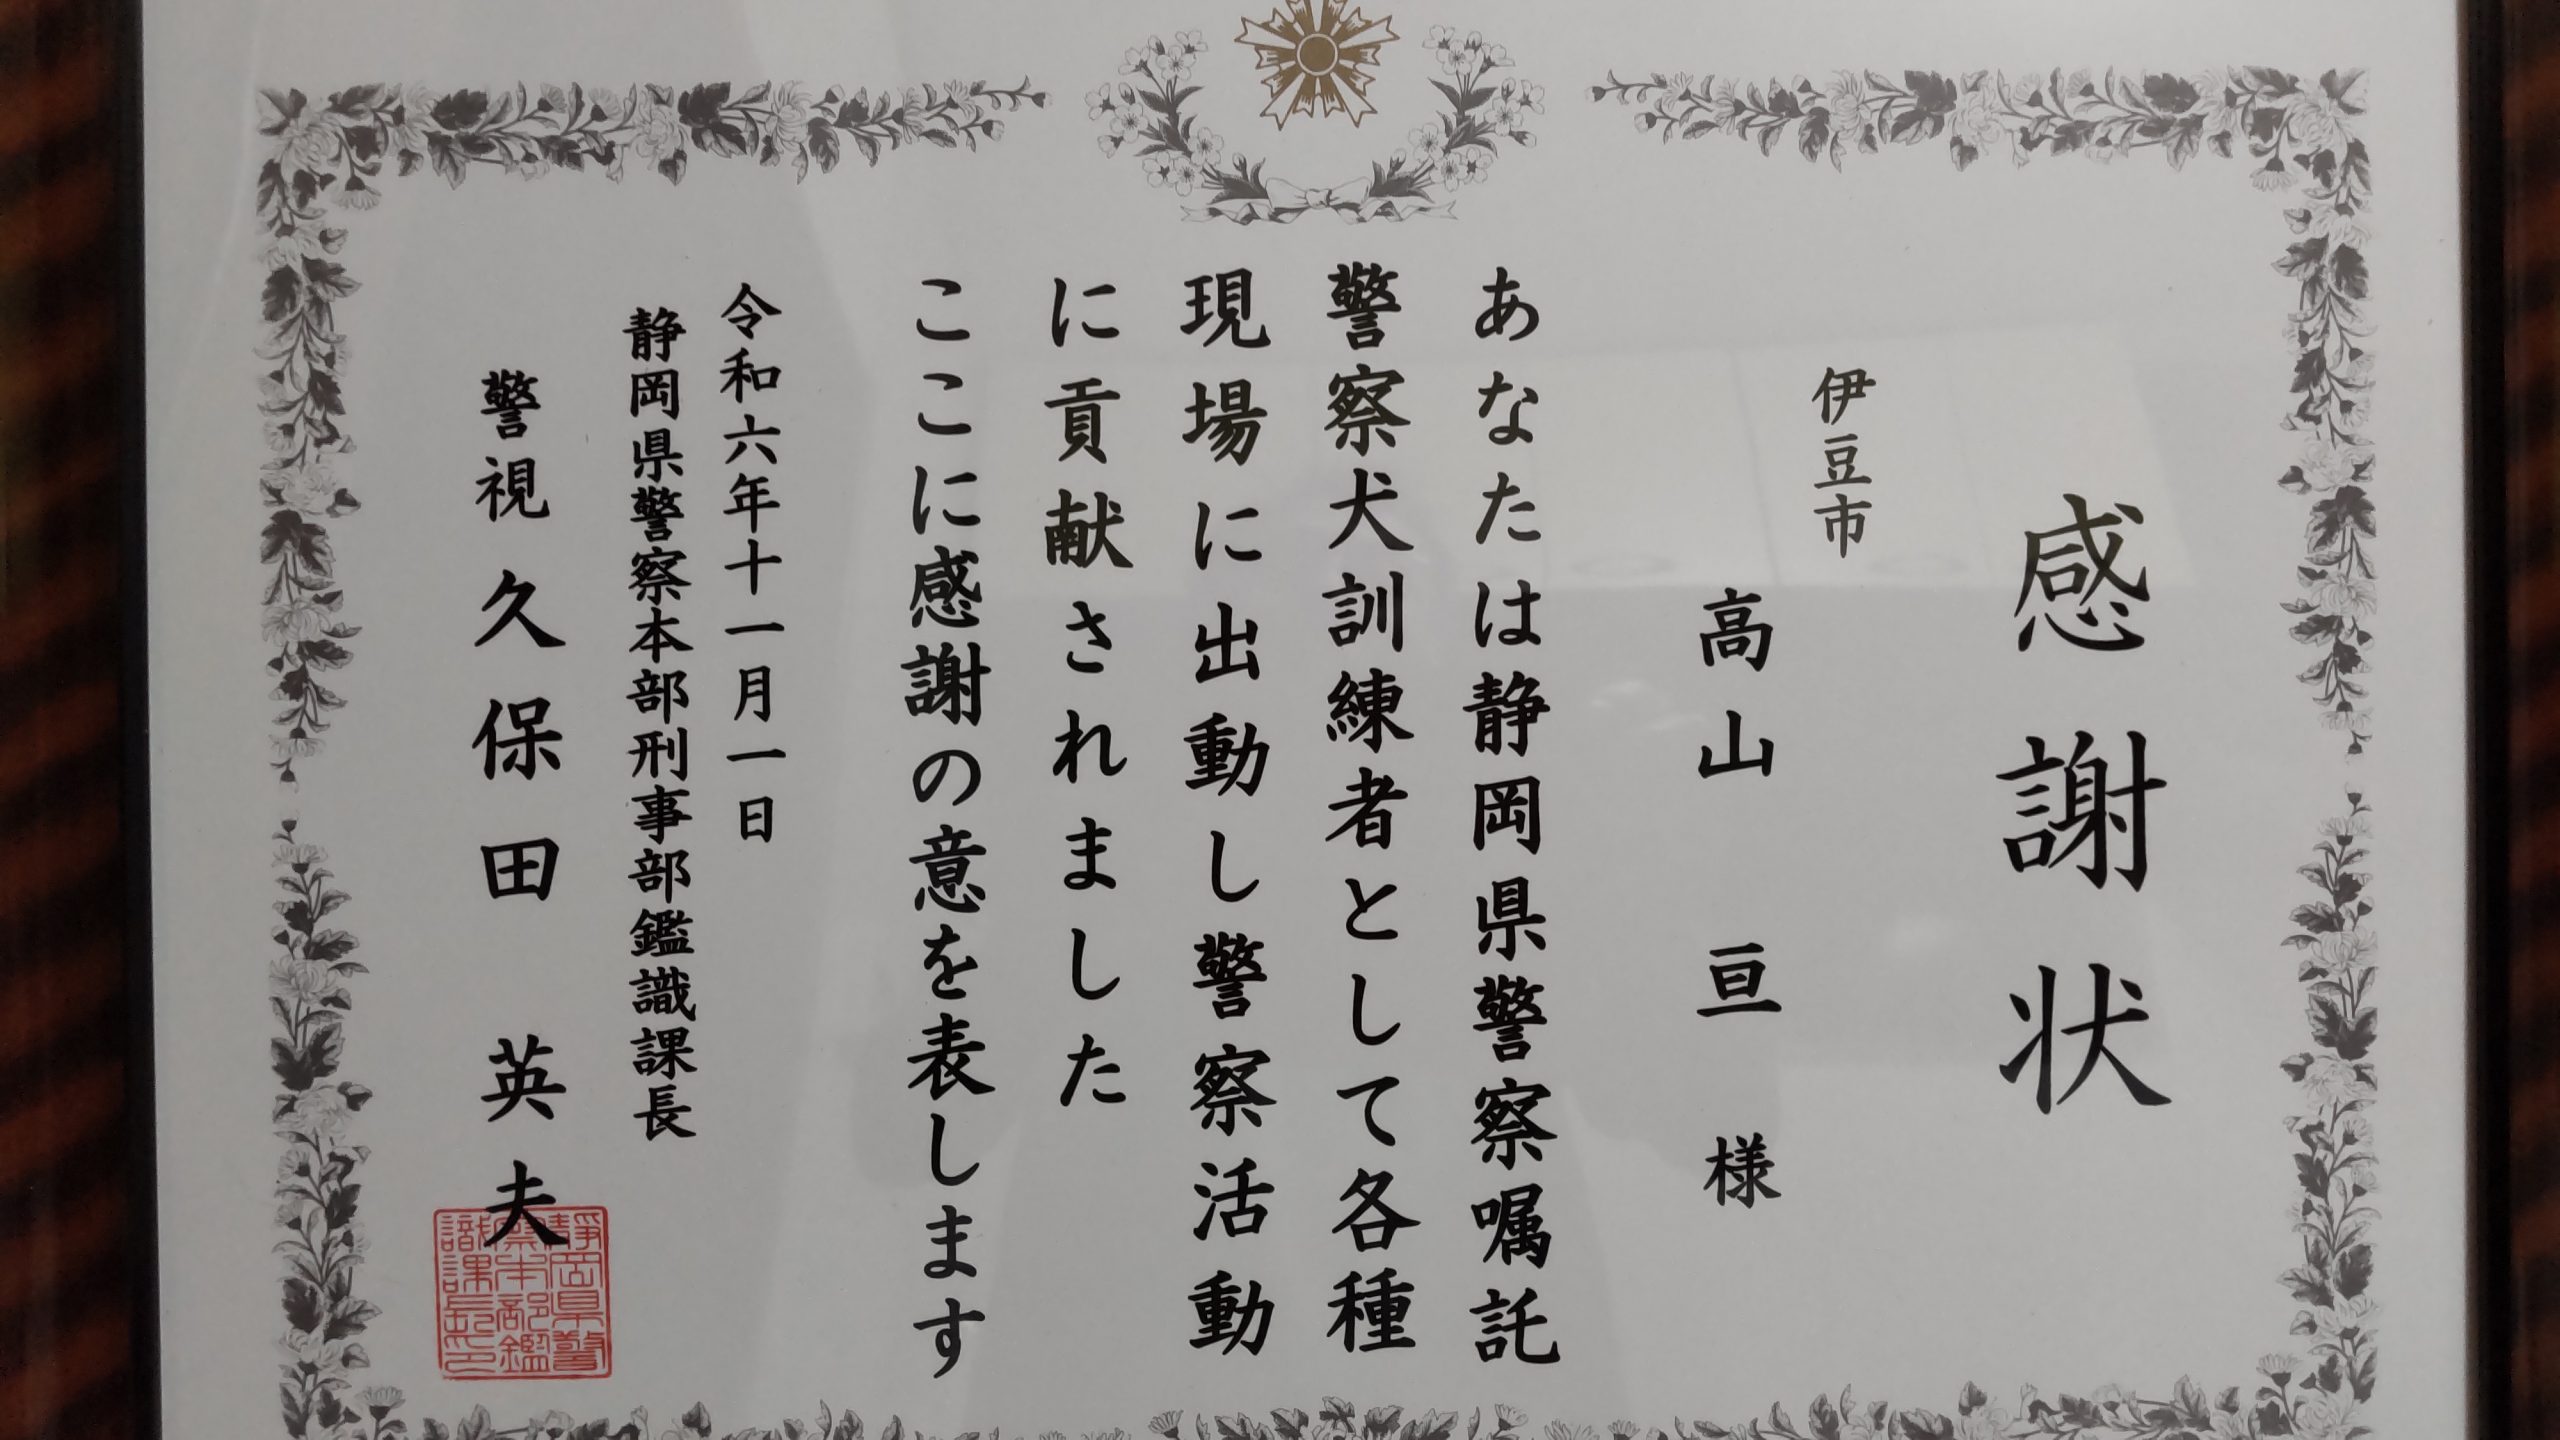 感謝状
伊豆市
高山亘様
あなたは静岡県警察嘱託
警察犬訓練者として各種
現場に出動し警察活動
に貢献されました
ここに感謝の意を表します
令和六年十一月一日
静岡県警察本部刑事部鑑識課長
警視久保田英夫
静岡県警
察本部鑑
識課長印